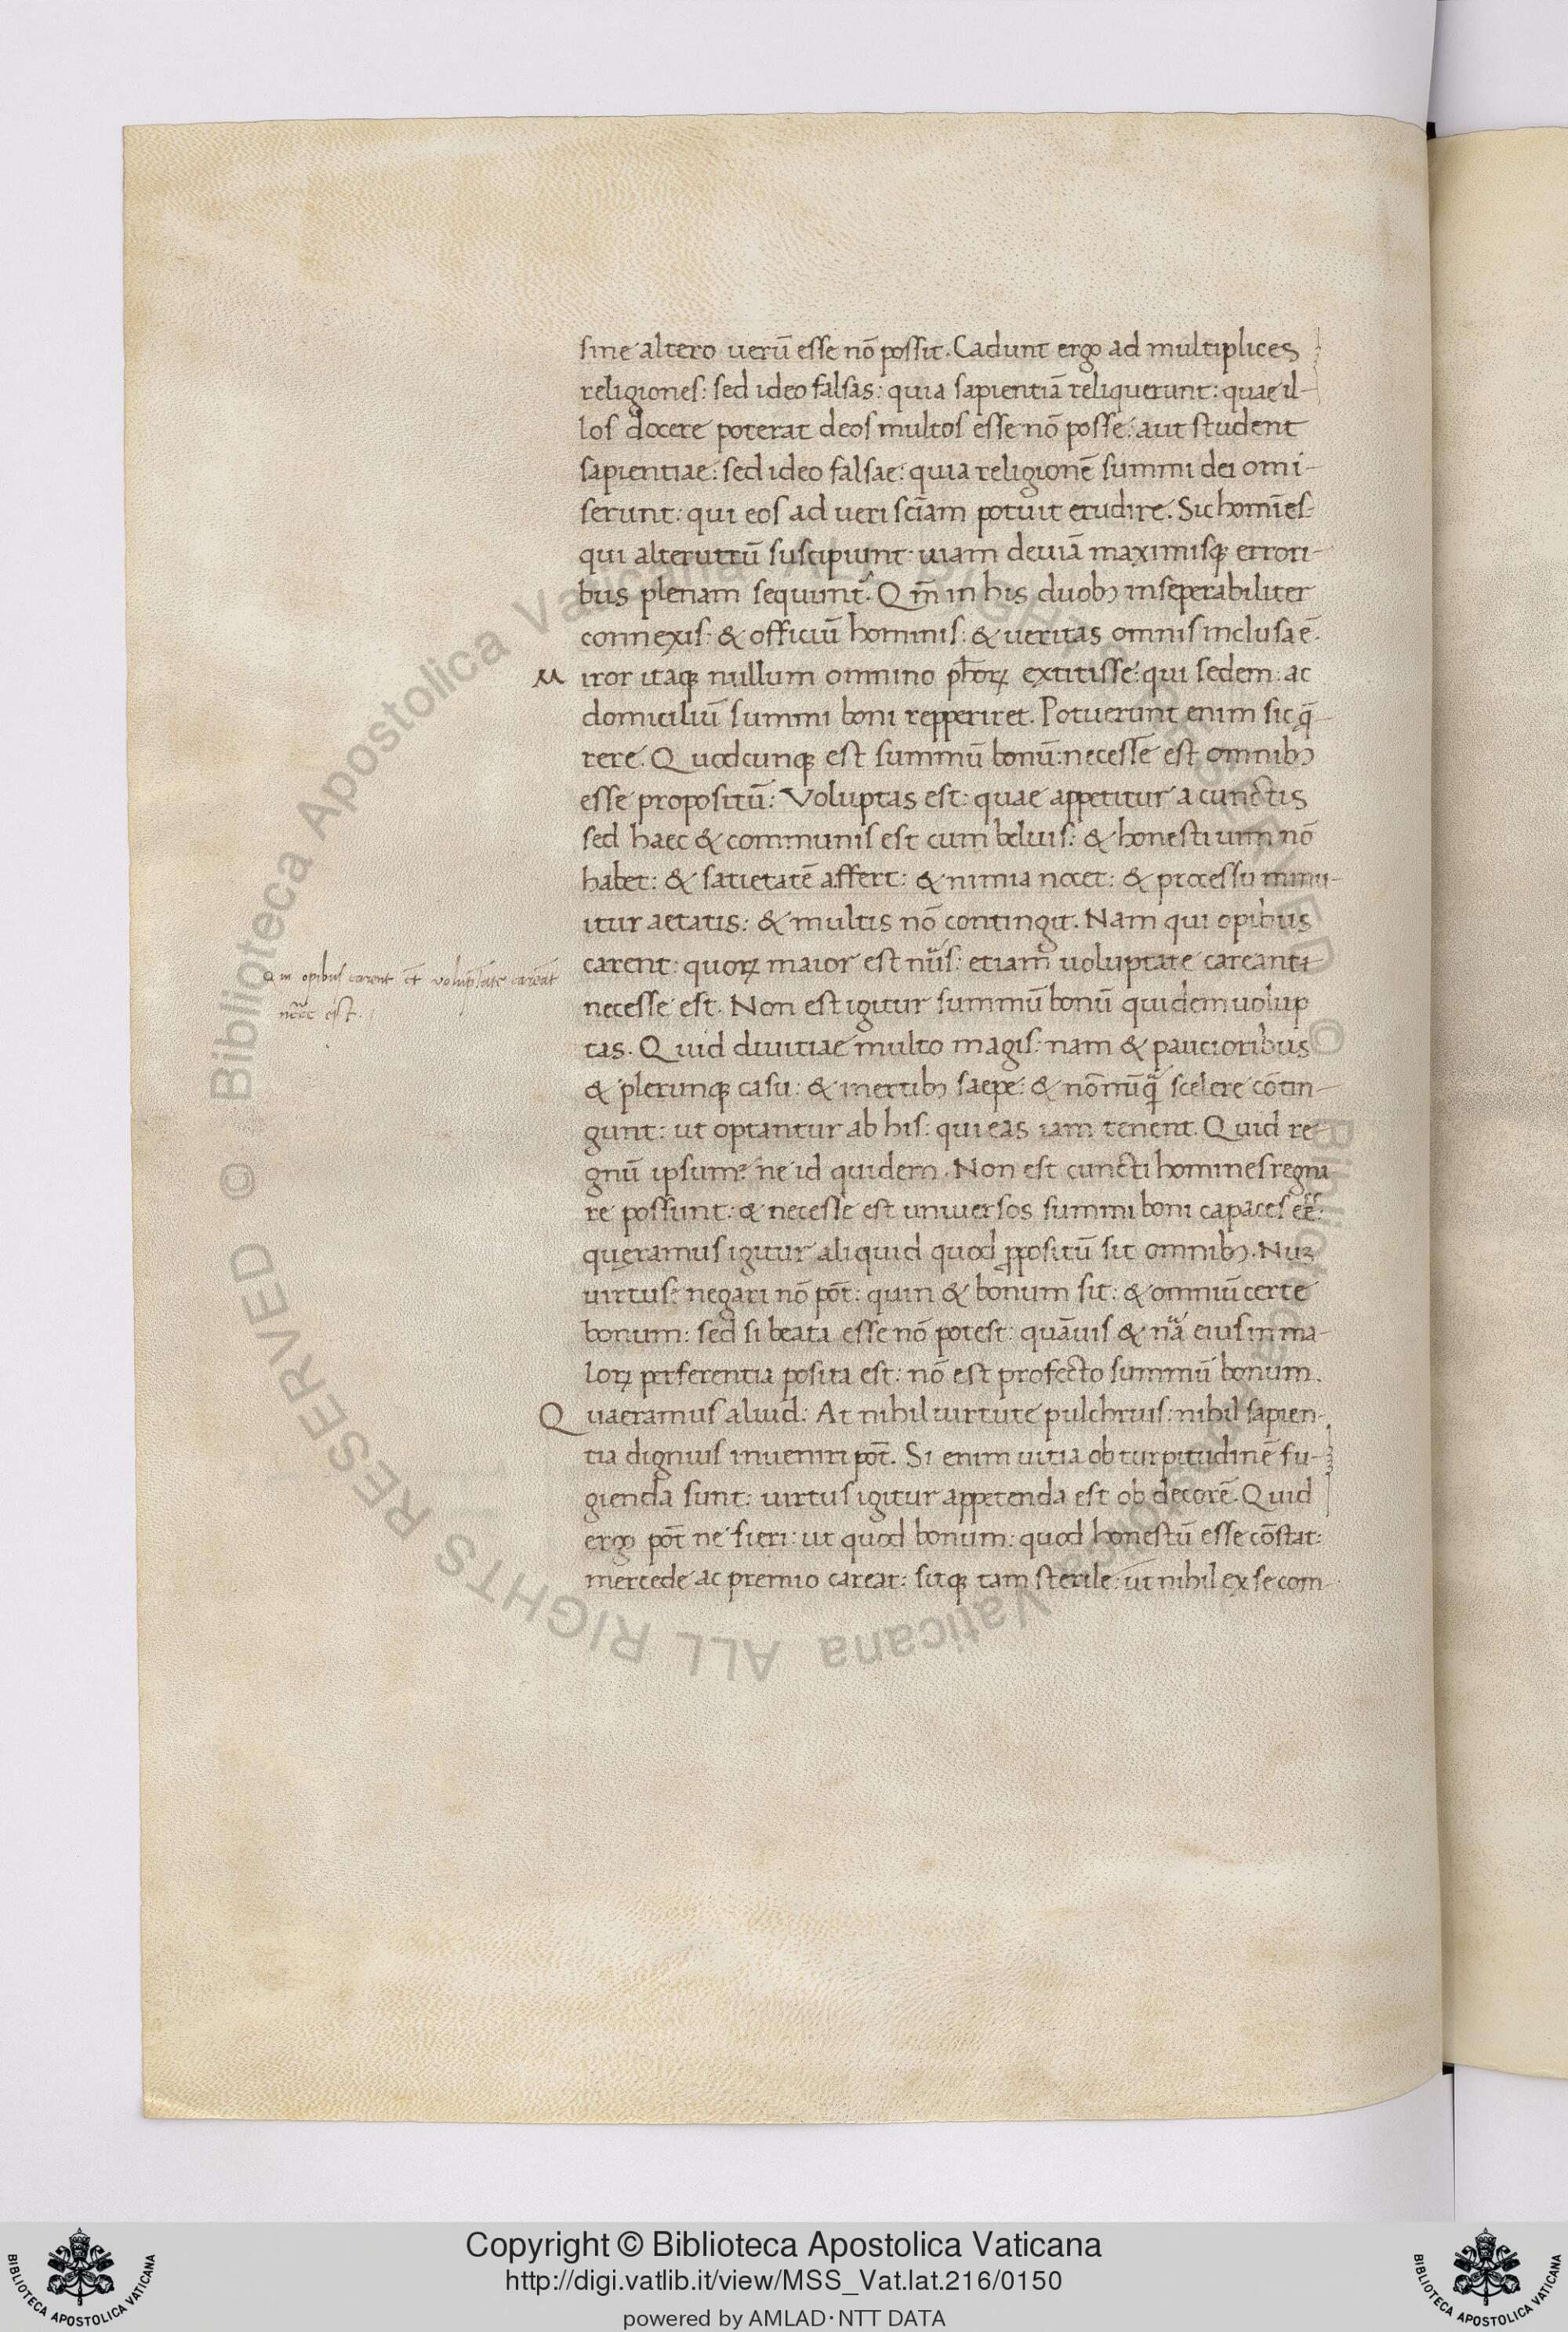 sine altero uerū esse nō possit. Cadunt ergo ad multiplices
religiones: sed ideo falsas: quia sapientiā reliquerunt: quae il-
los docere poterat deos multos esse nō posse: aut student
sapientiae: sed ideo falsae: quia religionē summi dei omi-
serunt: qui eos ad ueri sciam potuit erudire. Sic homīes:
qui alterutrū suscipiunt uiam deuiā maximisq; errori-
bus plenam sequunt᷑. Qm̄ in his duobꝫ inseperabiliter
connexis: & officiū hominis: & ueritas omnis inclusa ē.
Miror itaq; nullum omnino ph̄orꝝ extitisse: qui sedem: ac
domiciliū summi boni repperiret. Potuerunt enim sic q̄-
rere. Quodcunq; est summū bonū: necesse est omnibꝫ
esse propositū: Voluptas est: quae appetitur a cunctis
sed haec & communis est cum beluis: & honesti uim nō
habet: & satietatē affert: & nimia nocet: & processu minu-
itur aetatis: & multis nō contingit. Nam qui opibus
carent: quorꝝ maior est nūs: etiam uoluptate careant
Qm opibus carent et̄ voluptate careāt
necc̄e est.
necesse est. Non est igitur summū bonū quidem uolup
tas. Quid diuitiae multo magis: nam & paucioribus
& plerunq; casu: & inertibꝫ saepe: & nōnūq̄ scelere cōtin-
gunt: ut optantur ab his: qui eas iam tenent. Quid re-
gnū ipsum? ne id quidem. Non est cuncti homines regna-
re possunt: & necesse est uniuersos summi boni capaces eē:
quęramus igitur aliquid quod ꝓpositū sit omnibꝫ. Nuꝫ
uirtus? negari nō pōt: quin & bonum sit: & omniū certe
bonum: sed si beata esse nō potest: quāuis & nā eius in ma-
lorꝝ perferentia posita est: nō est profecto summū bonum.
Quaeramus aliud: At nihil uirtute pulchrius: nihil sapien-
tia dignius inueniri pōt. Si enim uitia ob turpitudinē fu-
gienda sunt: uirtus igitur appetenda est ob decorē. Quid
ergo pōt ne fieri: ut quod bonum: quod honestū esse cōstat:
mercede ac premio careat: sitq; tam sterile: ut nihil ex se com-
© Biblioteca Apostolica Vaticana ALL RIGHTS RESERVED
© Biblioteca Apostolica Vaticana ALL RIGHTS RESERVED
Copyright © Biblioteca Apostolica Vaticana
http://digi.vatlib.it/view/MSS_Vat.lat.216/0150
powered by AMLAD·NTT DATA
BIBLIOTECA APOSTOLICA VATICANA
BIBLIOTECA APOSTOLICA VATICANA